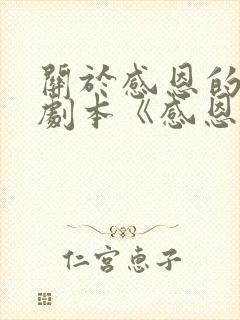 關於感恩的
劇本《感恩
仁宮惠子